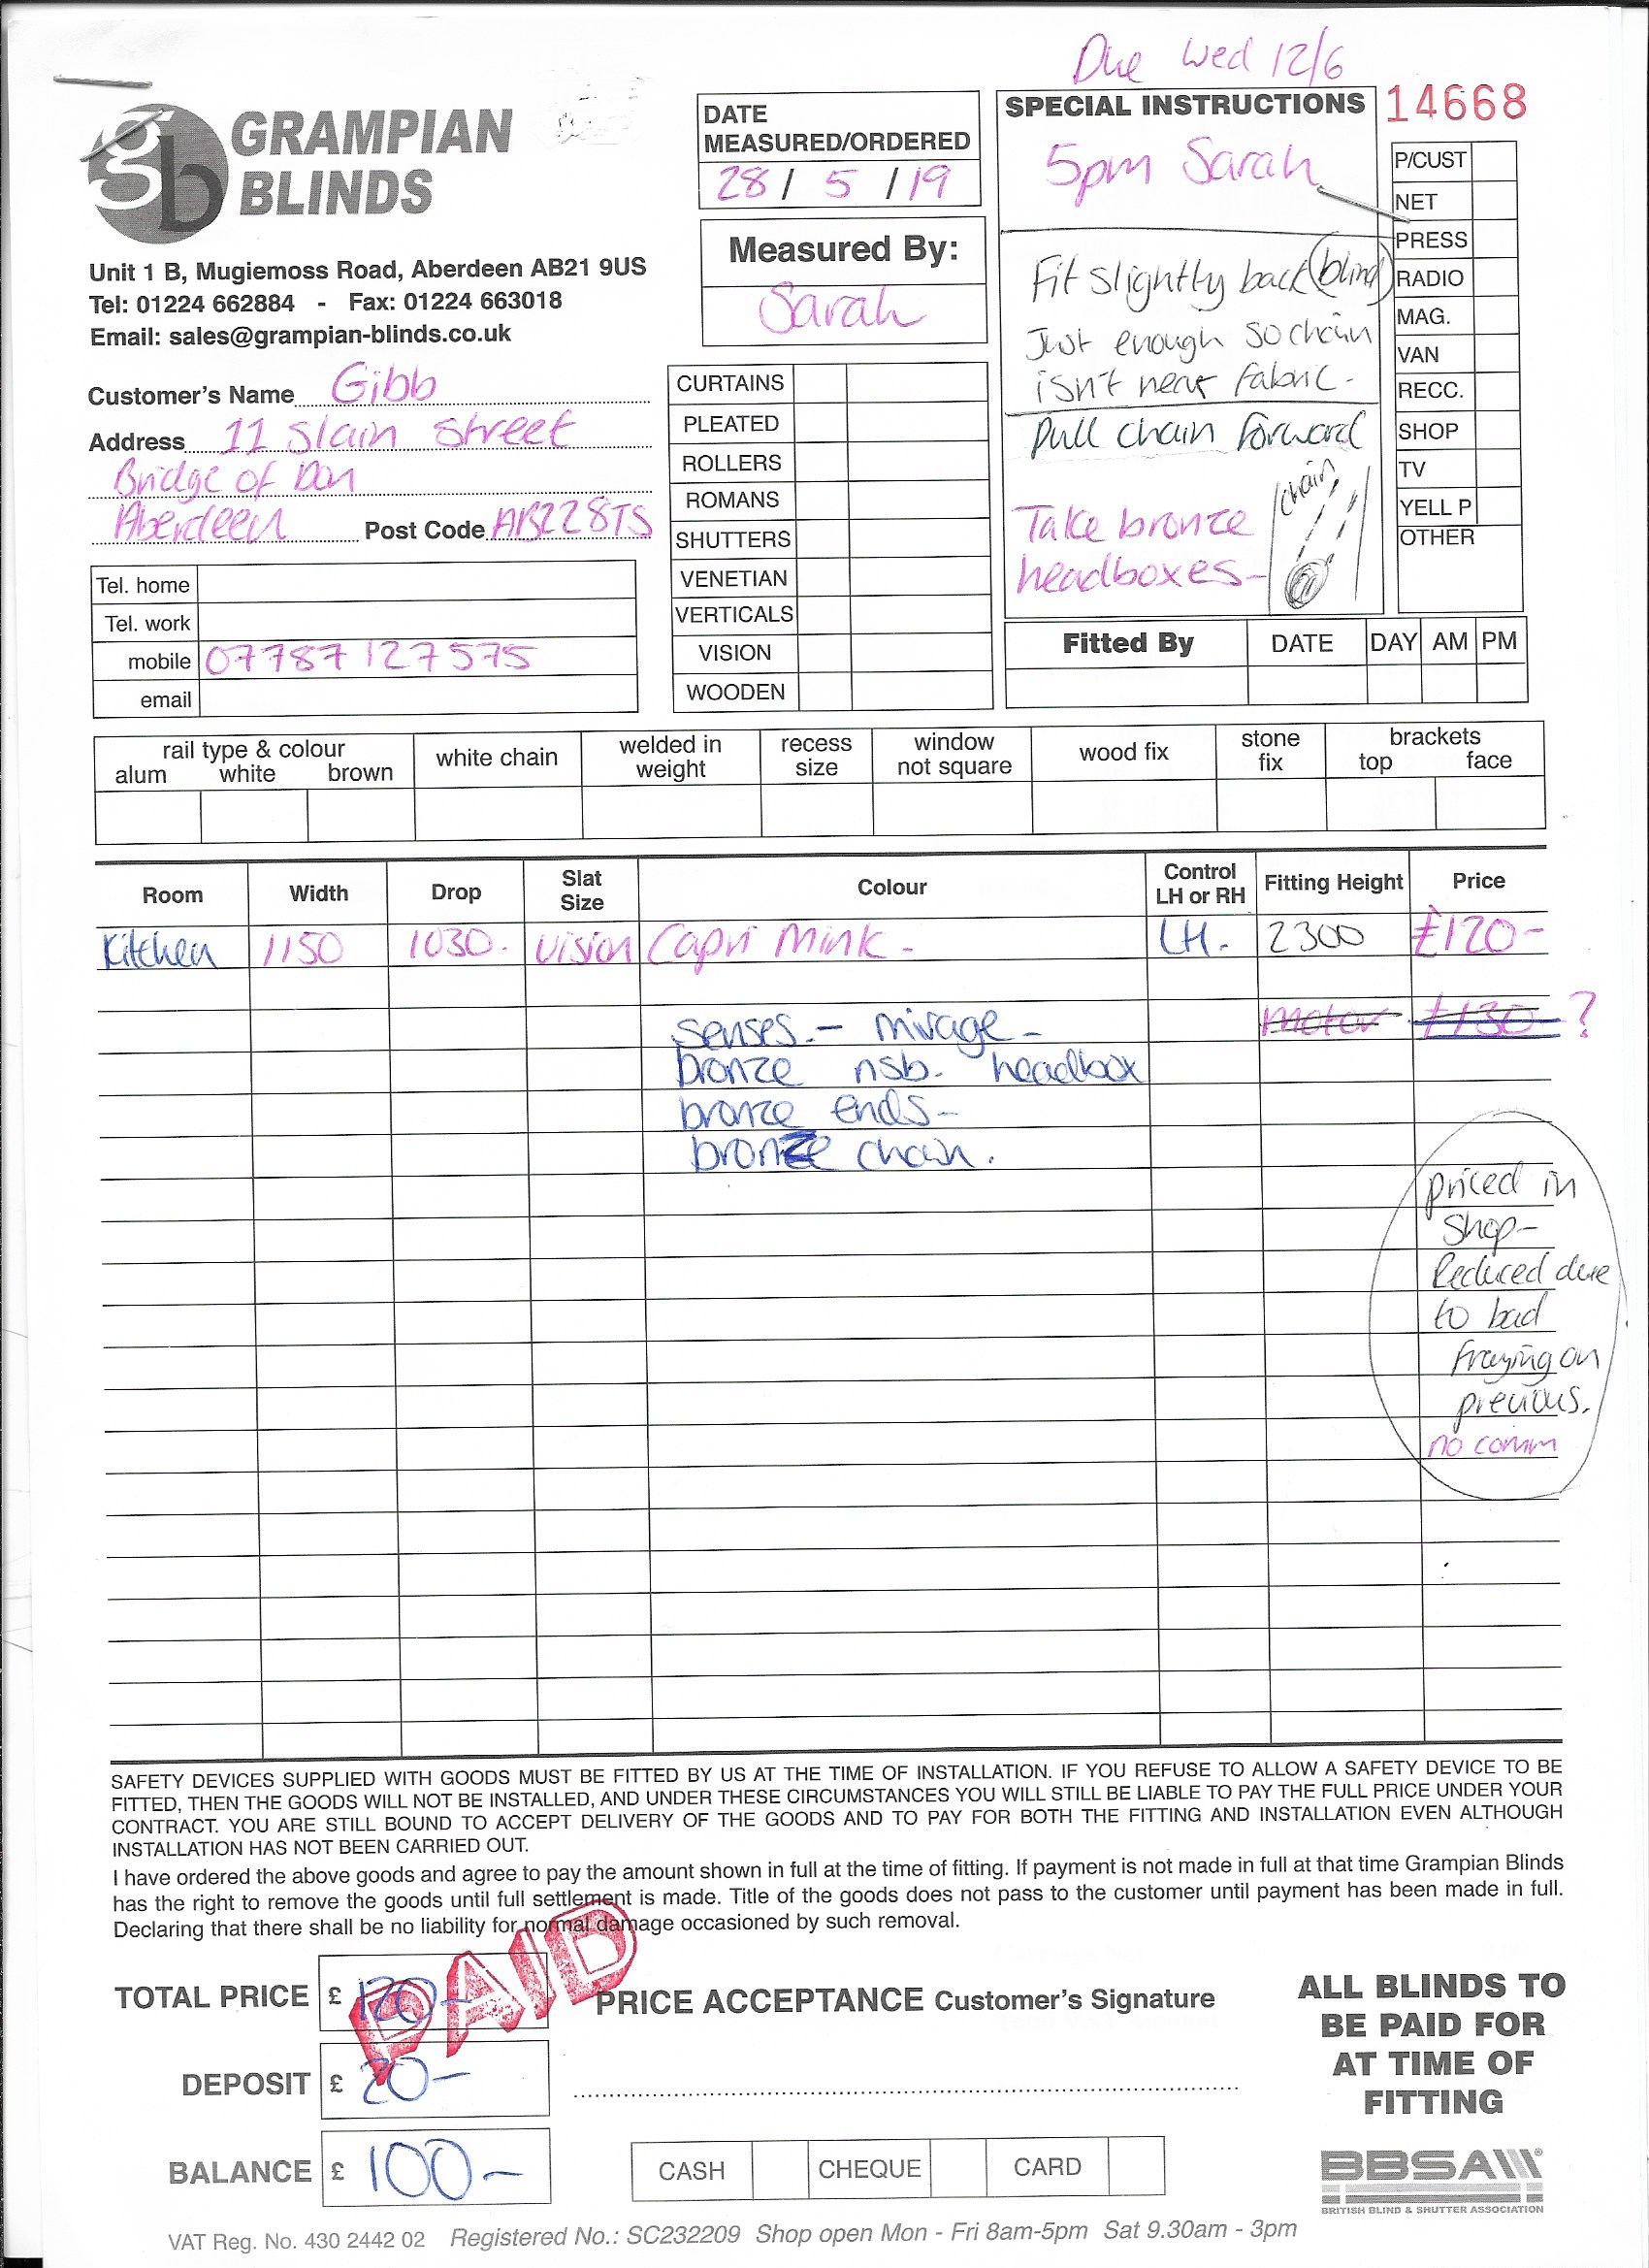 Due Wed 12/6
gb GRAMPIAN
BLINDS
Unit 1 B, Mugiemoss Road, Aberdeen AB21 9US
Tel: 01224 662884 - Fax: 01224 663018
Email: sales@grampian-blinds.co.uk
DATE
MEASURED/ORDERED
28 / 5 / 19
Measured By:
Sarah
SPECIAL INSTRUCTIONS
5pm Sarah
Fit slightly back (blind)
Just enough so chain
isn't near fabric -
Pull chain forward
chain
Take bronze
headboxes-
14668
P/CUST
NET
PRESS
RADIO
MAG.
VAN
RECC.
SHOP
TV
YELL P
OTHER
Customer's Name Gibb
Address 11 Slain Street
Bridge of Don
Aberdeen Post Code AB228TS
Tel. home
Tel. work
mobile 07787127575
email
CURTAINS
PLEATED
ROLLERS
ROMANS
SHUTTERS
VENETIAN
VERTICALS
VISION
WOODEN
Fitted By DATE DAY AM PM
rail type & colour
alum white brown
white chain
welded in
weight
recess
size
window
not square
wood fix
stone
fix
brackets
top face
Room Width Drop Slat Size Colour Control LH or RH Fitting Height Price
Kitchen 1150 1030- Vision Capri Mink - LH. 2300 £120-
senses. - mirage - motor £130 ?
bronze nsb. headbox
bronze ends-
bronze chain.
priced in
shop-
Reduced due
to bad
fraying on
previous.
no comm
SAFETY DEVICES SUPPLIED WITH GOODS MUST BE FITTED BY US AT THE TIME OF INSTALLATION. IF YOU REFUSE TO ALLOW A SAFETY DEVICE TO BE
FITTED, THEN THE GOODS WILL NOT BE INSTALLED, AND UNDER THESE CIRCUMSTANCES YOU WILL STILL BE LIABLE TO PAY THE FULL PRICE UNDER YOUR
CONTRACT. YOU ARE STILL BOUND TO ACCEPT DELIVERY OF THE GOODS AND TO PAY FOR BOTH THE FITTING AND INSTALLATION EVEN ALTHOUGH
INSTALLATION HAS NOT BEEN CARRIED OUT.
I have ordered the above goods and agree to pay the amount shown in full at the time of fitting. If payment is not made in full at that time Grampian Blinds
has the right to remove the goods until full settlement is made. Title of the goods does not pass to the customer until payment has been made in full.
Declaring that there shall be no liability for normal damage occasioned by such removal.
TOTAL PRICE £ 120-
PAID
DEPOSIT £ 20-
BALANCE £ 100-
PRICE ACCEPTANCE Customer's Signature
CASH CHEQUE CARD
ALL BLINDS TO
BE PAID FOR
AT TIME OF
FITTING
BBSA
BRITISH BLIND & SHUTTER ASSOCIATION
VAT Reg. No. 430 2442 02 Registered No.: SC232209 Shop open Mon - Fri 8am-5pm Sat 9.30am - 3pm